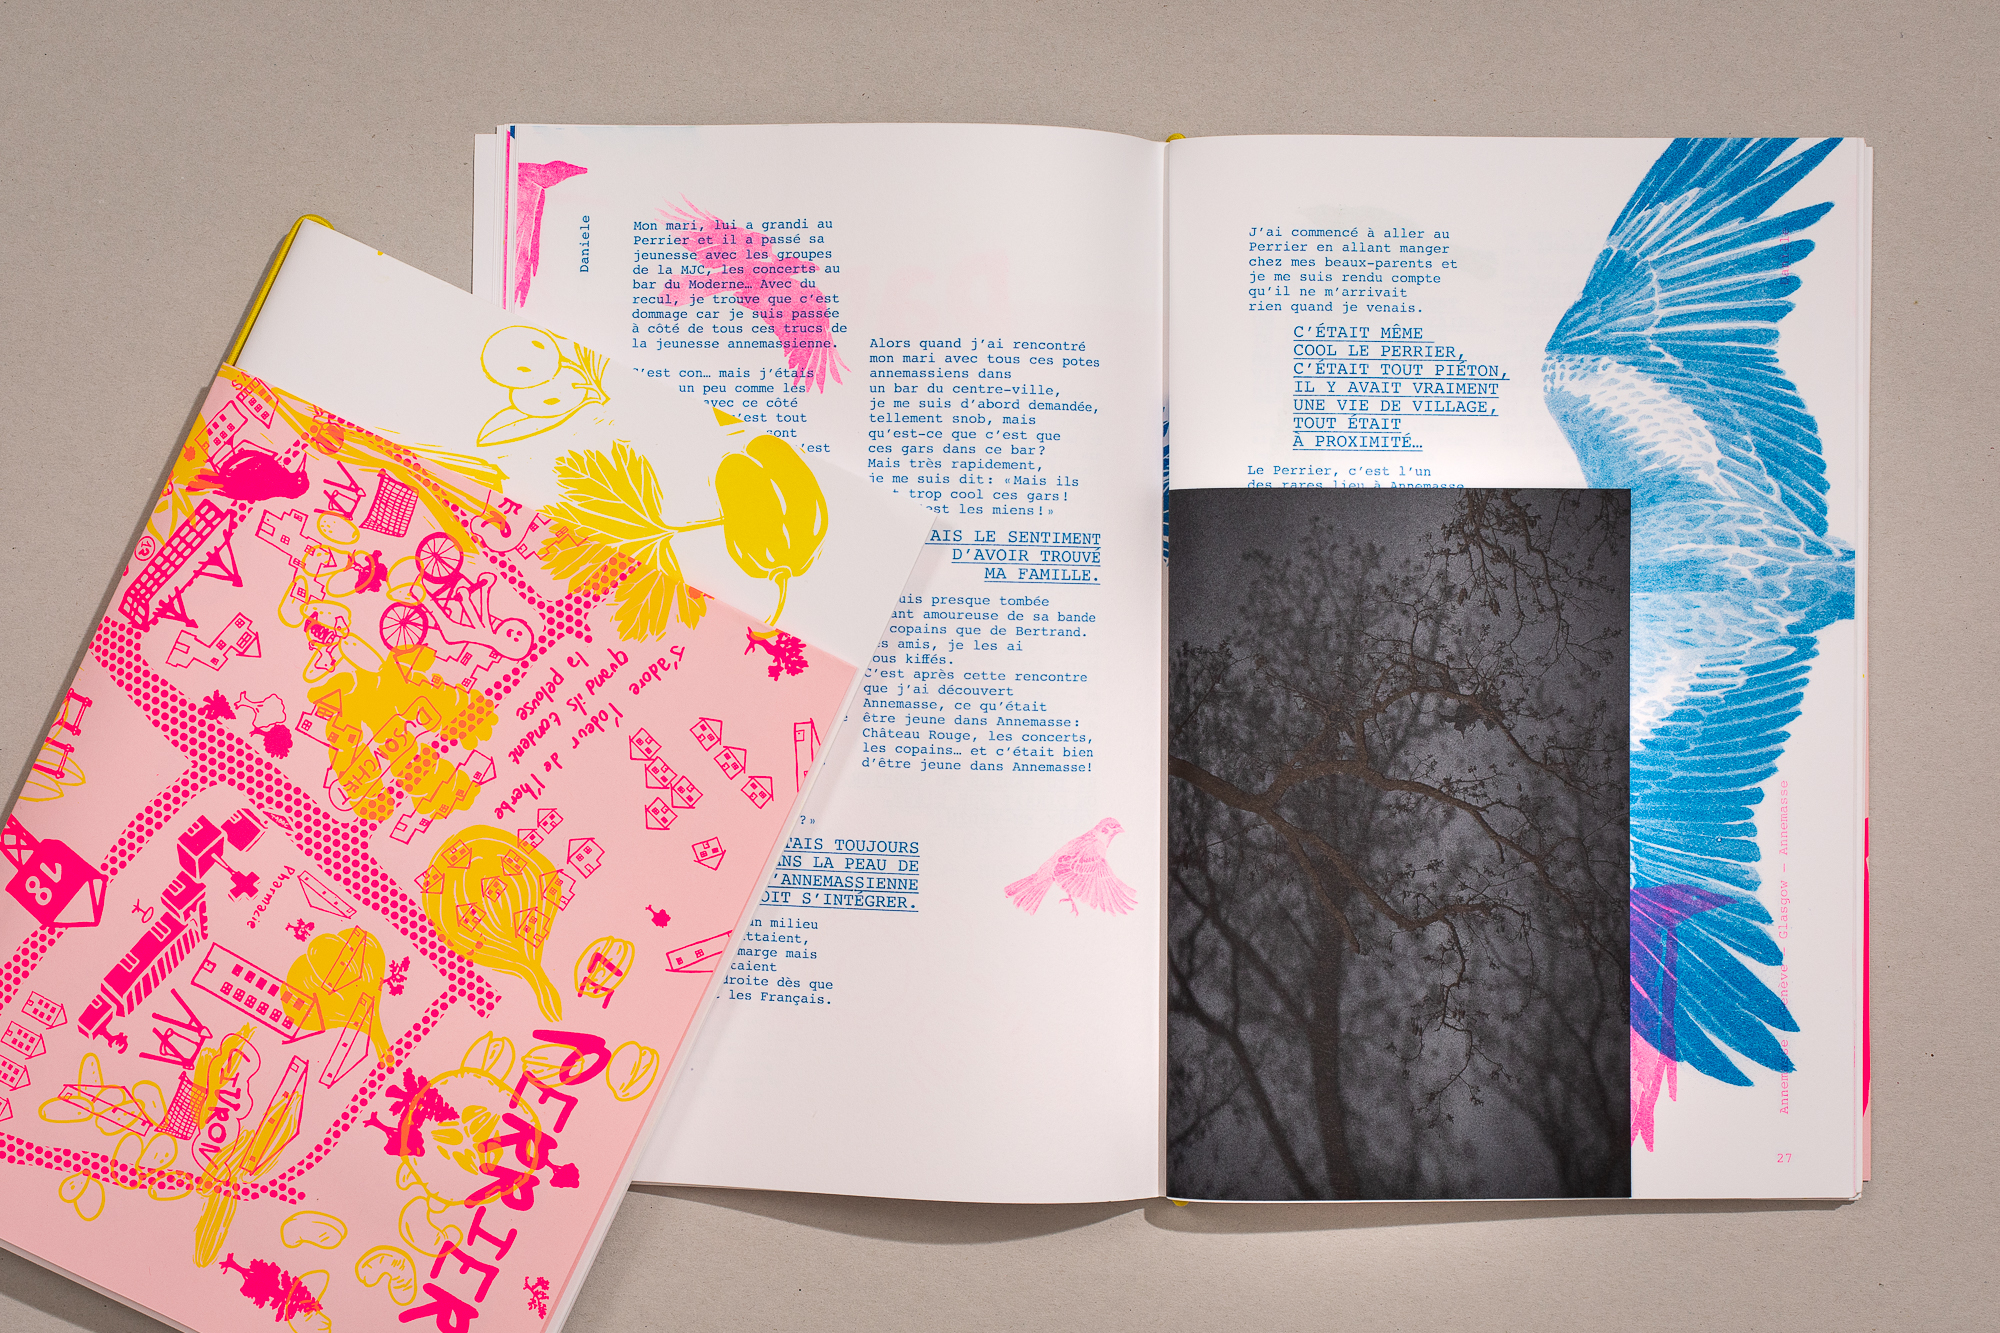 Danièle
Mon mari, lui a grandi au
Perrier et il a passé sa
jeunesse avec les groupes
de la MJC, les concerts au
bar du Moderne… Avec du
recul, je trouve que c'est
dommage car je suis passée
à côté de tous ces trucs de
la jeunesse annemassienne.
'est con… mais j'étais
un peu comme les
avec ce côté
'est tout
sont
'est
Alors quand j'ai rencontré
mon mari avec tous ces potes
annemassiens dans
un bar du centre-ville,
je me suis d'abord demandée,
tellement snob, mais
qu'est-ce que c'est que
ces gars dans ce bar?
Mais très rapidement,
je me suis dit: «Mais ils
t trop cool ces gars!
est les miens!»
AIS LE SENTIMENT
D'AVOIR TROUVÉ
MA FAMILLE.
uis presque tombée
ant amoureuse de sa bande
copains que de Bertrand.
s amis, je les ai
ous kiffés.
C'est après cette rencontre
que j'ai découvert
Annemasse, ce qu'était
être jeune dans Annemasse:
Château Rouge, les concerts,
les copains… et c'était bien
d'être jeune dans Annemasse!
?»
TAIS TOUJOURS
ANS LA PEAU DE
'ANNEMASSIENNE
OIT S'INTÉGRER.
un milieu
ttaient,
marge mais
taient
droite dès que
les Français.
J'ai commencé à aller au
Perrier en allant manger
chez mes beaux-parents et
je me suis rendu compte
qu'il ne m'arrivait
rien quand je venais.
C'ÉTAIT MÊME
COOL LE PERRIER,
C'ÉTAIT TOUT PIÉTON,
IL Y AVAIT VRAIMENT
UNE VIE DE VILLAGE,
TOUT ÉTAIT
À PROXIMITÉ…
Le Perrier, c'est l'un
des rares lieu à Annemasse
Danièle
Annemasse – Genève – Glasgow – Annemasse
27
J'adore l'odeur de l'herbe
quand ils tondent
la pelouse
JONCHÈ
18
Pharmacie
LIVRON
LE
PERRIER